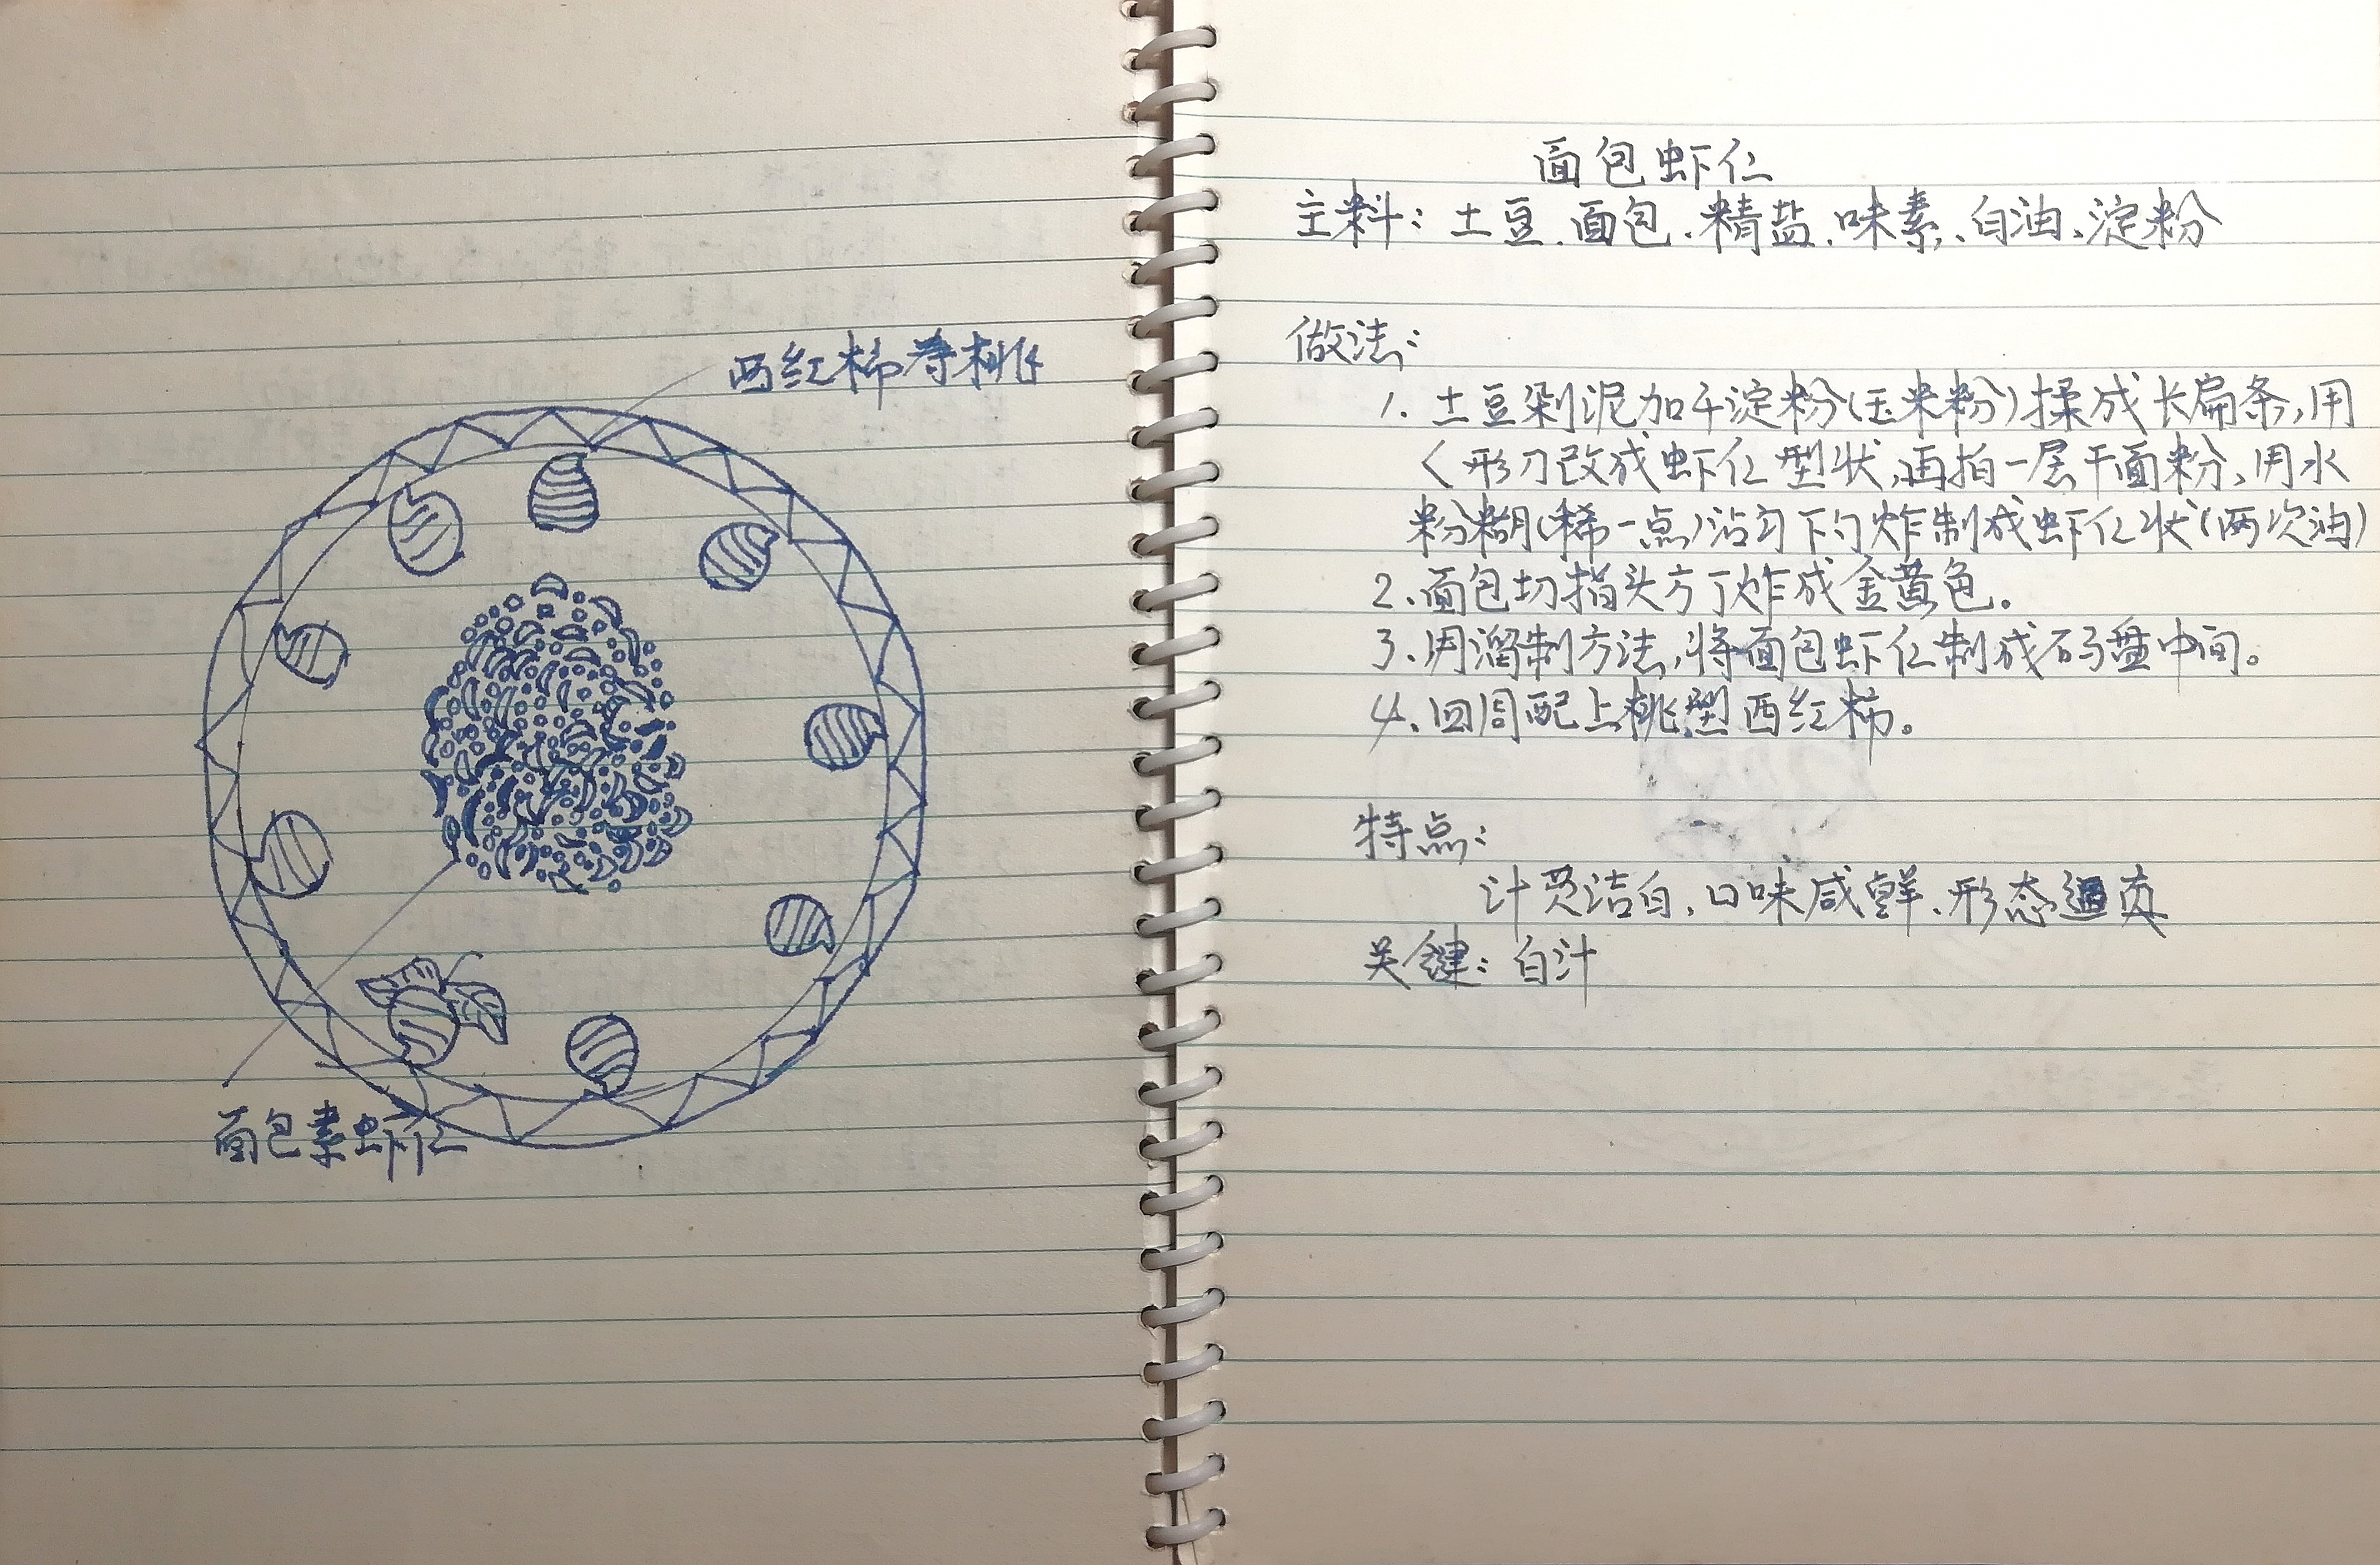 西红柿寿桃
面包素虾仁
面包虾仁
主料：土豆、面包、精盐、味素、白油、淀粉
做法：
1. 土豆剁泥加干淀粉(玉米粉)揉成长扁条,用
く形刀改成虾仁型状,再拍一层干面粉,用水
粉糊(稀一点)沾匀下勺炸制成虾仁状(两次油)
2、面包切指头方丁炸成金黄色。
3、用溜制方法,将面包虾仁制成码盘中间。
4、四周配上桃型西红柿。
特点：
汁芡洁白、口味咸鲜、形态逼真
关键：白汁